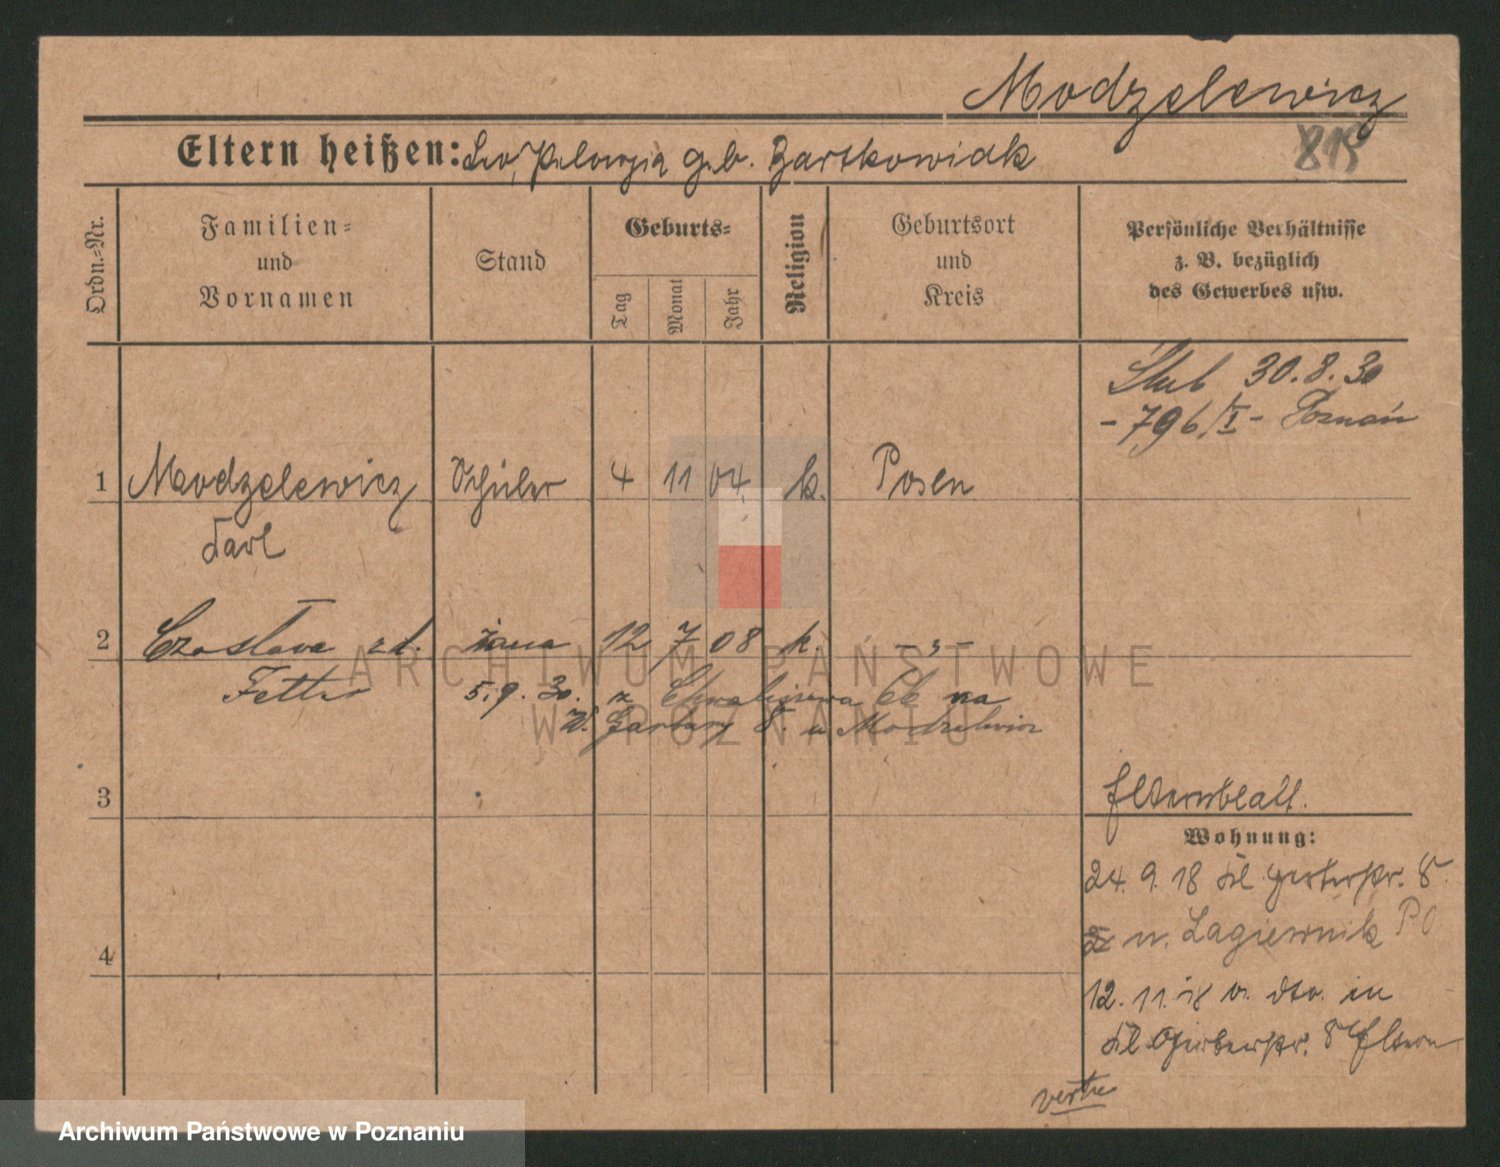 Modzelewicz
815
Eltern heißen: Leo, Pelagia geb. Bartkowiak
Ordn.-Nr.
Familien-
und
Vornamen
Stand
Geburts-
Tag
Monat
Jahr
Religion
Geburtsort
und
Kreis
Persönliche Verhältnisse
z. B. bezüglich
des Gewerbes usw.
Ślub 30.8.30
- 796/I - Poznań
1 Modzelewicz Schüler 4 11 04 k. Posen
Karl
2 Czesława żona 12 7 08 k. - " -
5.9.30. z Chwaliszewa 66 na
W. Garbary 8. u Modzelewicz
3
Elternblatt.
Wohnung:
24. 9. 18 Gerberstr. 8
n. Lagiewnik
4
12. 11. 18 v. dto. in
Gerberstr. 8 Eltern
verte
ARCHIWUM PAŃSTWOWE
W POZNANIU
Archiwum Państwowe w Poznaniu